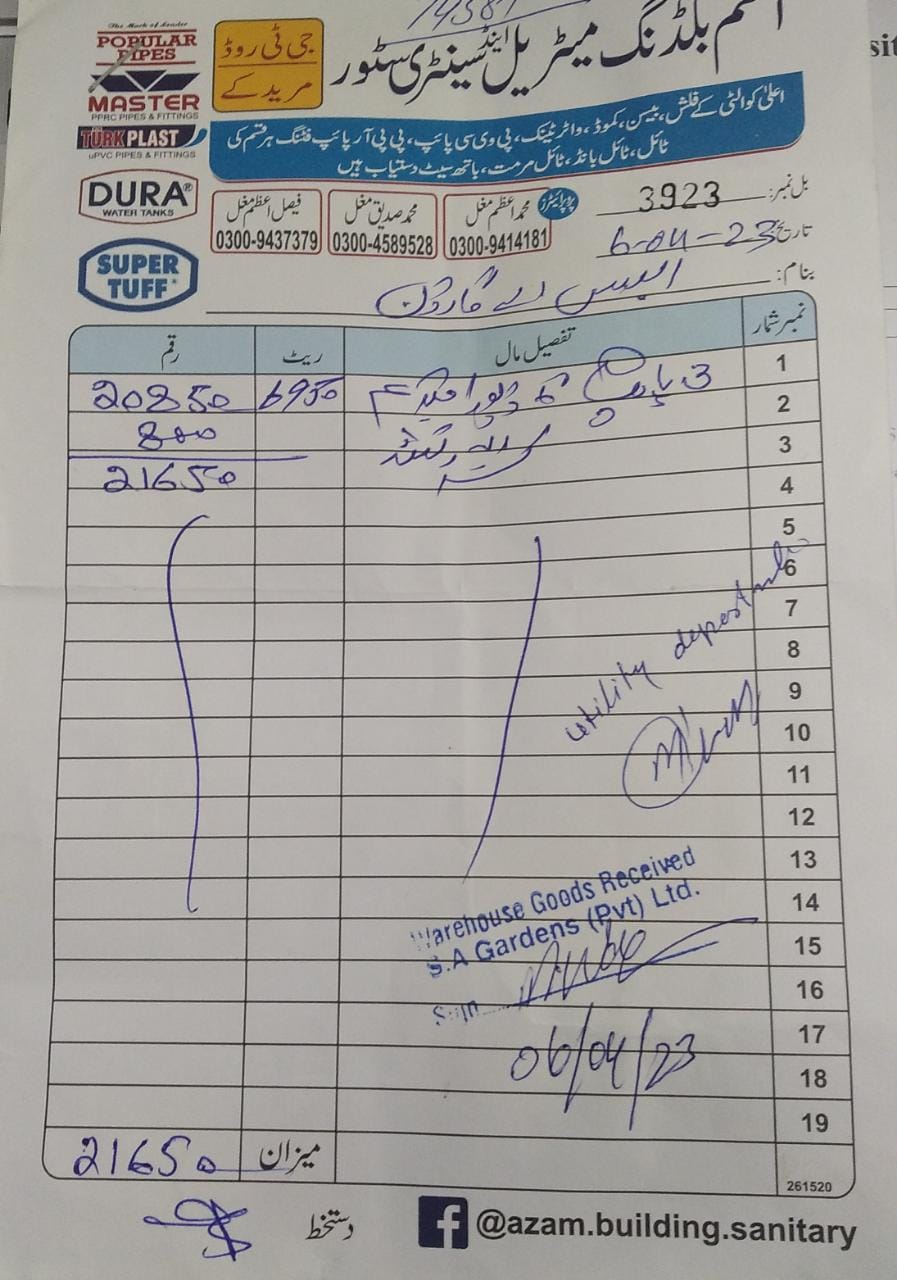 14581
The Mark of Leader
POPULAR PIPES
MASTER
PPRC PIPES & FITTINGS
TÜRK PLAST
uPVC PIPES & FITTINGS
DURA®
WATER TANKS
SUPER TUFF
جی ٹی روڈ
مرید کے
بلڈنگ میٹریل اینڈ سینٹری سٹور
اعلیٰ کوالٹی کے فلش، بیسن، کموڈ، واٹر ٹینک، پی وی سی پائپ، پی پی آر پائپ فٹنگ ہر قسم کی
ٹائل، ٹائل بانڈ، ٹائل مرمت، باتھ سیٹ دستیاب ہیں
پروپرائیٹرز
محمد اعظم مغل
0300-9414181
محمد صدیق مغل
0300-4589528
فیصل اعظم مغل
0300-9437379
بل نمبر: 3923
تاریخ: 6-04-23
بنام: ایس اے گارڈن
نمبر شمار تفصیل مال ریٹ رقم
1 3 پائپ 6 6950 20850
2 800
3 21650
4
5
6
7
8
9
10
11
12
13
14
15
16
17
18
19
utility
Warehouse Goods Received
S.A Gardens (Pvt) Ltd.
Sign
06/04/23
میزان 21650
261520
دستخط
@azam.building.sanitary